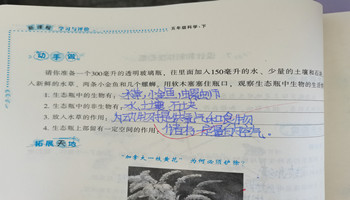 新课程 学习与评价 五年级科学·下
功率园
请你准备一个300毫升的透明玻璃瓶，往里面加入150毫升的水、少量的土壤和石块
入新鲜的水草、两条小金鱼和几个螺蛳，用软木塞塞住瓶口，观察生态瓶中生物的生
1. 生态瓶中的生物有：水草，小金鱼
2. 生态瓶中的非生物有：水，土壤，石块
3. 放入水草的作用：为动物提供氧气和食物
4. 生态瓶上部留有一定空间的作用：
拓展天地
“加拿大一枝黄花”为何必须铲除